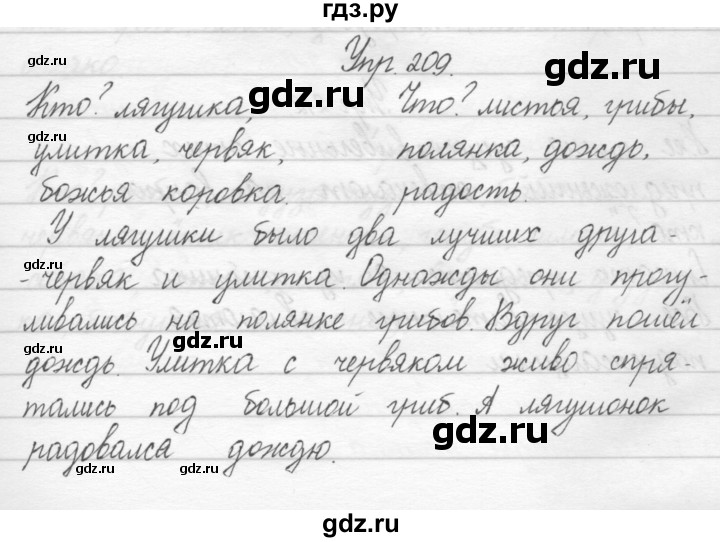 гдз.ру
Упр. 209.
Кто? лягушка, Что? листья, грибы,
улитка, червяк, полянка, дождь,
божья коровка. радость.
У лягушки было два лучших друга-
-червяк и улитка. Однажды они прогу-
ливались на полянке грибов. Вдруг пошёл
дождь. Улитка с червяком живо спря-
тались под большой гриб. А лягушонок
радовался дождю.
gdz.ru
gdz.ru
gdz.ru
gdz.ru
gdz.ru
gdz.ru
gdz.ru
gdz.ru
gdz.ru
gdz.ru
gdz.ru
gdz.ru